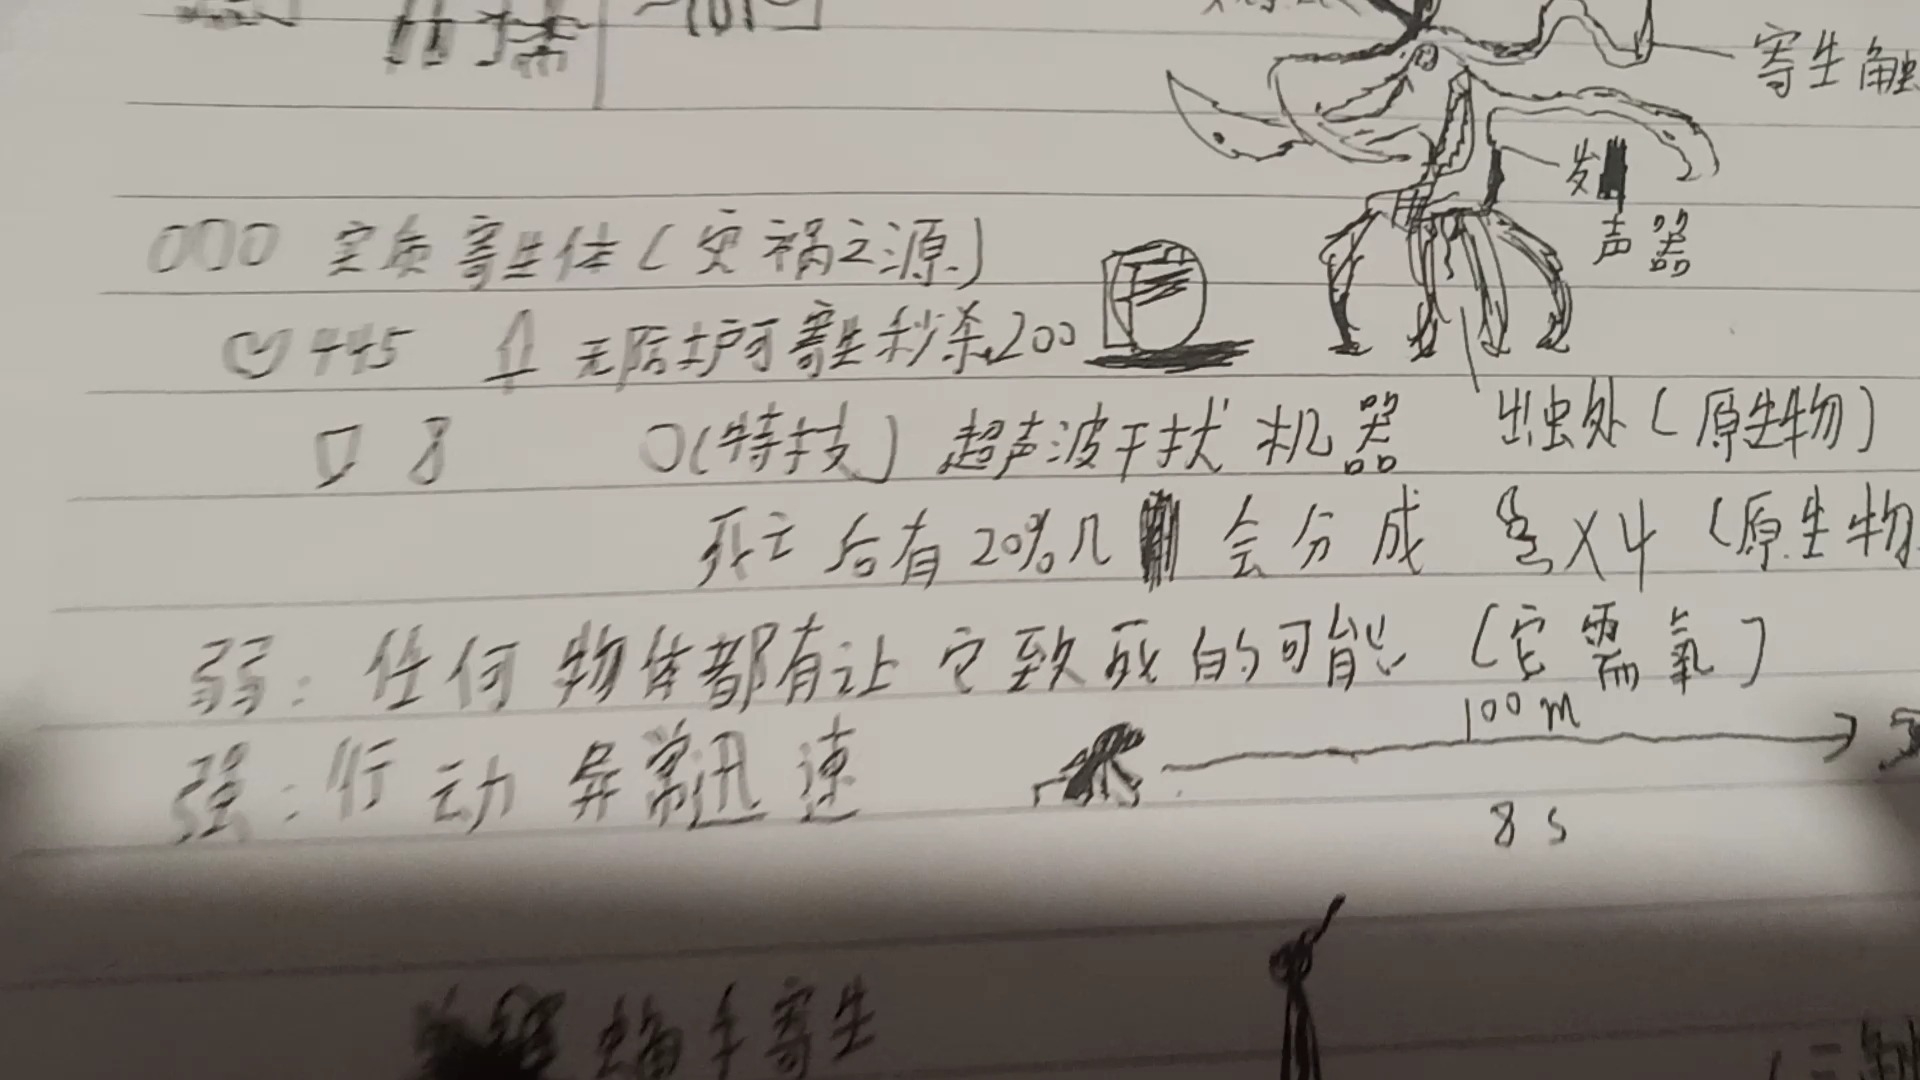 寄生触
发
声器
000 实质寄生体(灾祸之源)
445 无防护可寄生秒杀 200
8 (特技) 超声波干扰机器
出虫处(原生物)
死亡后有20%几 会分成 X4 (原生物
弱:任何物体都有让它致死的可能 (它需氧)
强:行动异常迅速
100m
8s
寄生